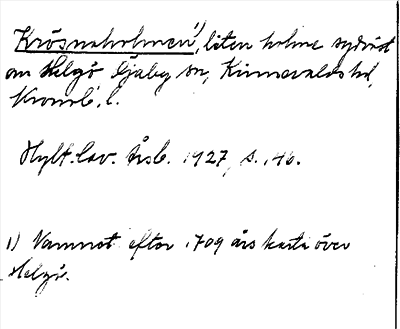 Krösnaholmen¹⁾, liten holme sydväst
om Helgö Öjaby sn, Kinnevalds hd,
Kronob. l.
Hylt.-Cav. Årsb. 1927, s. 146.
1) Namnet efter 1709 års karta över
Helgö.